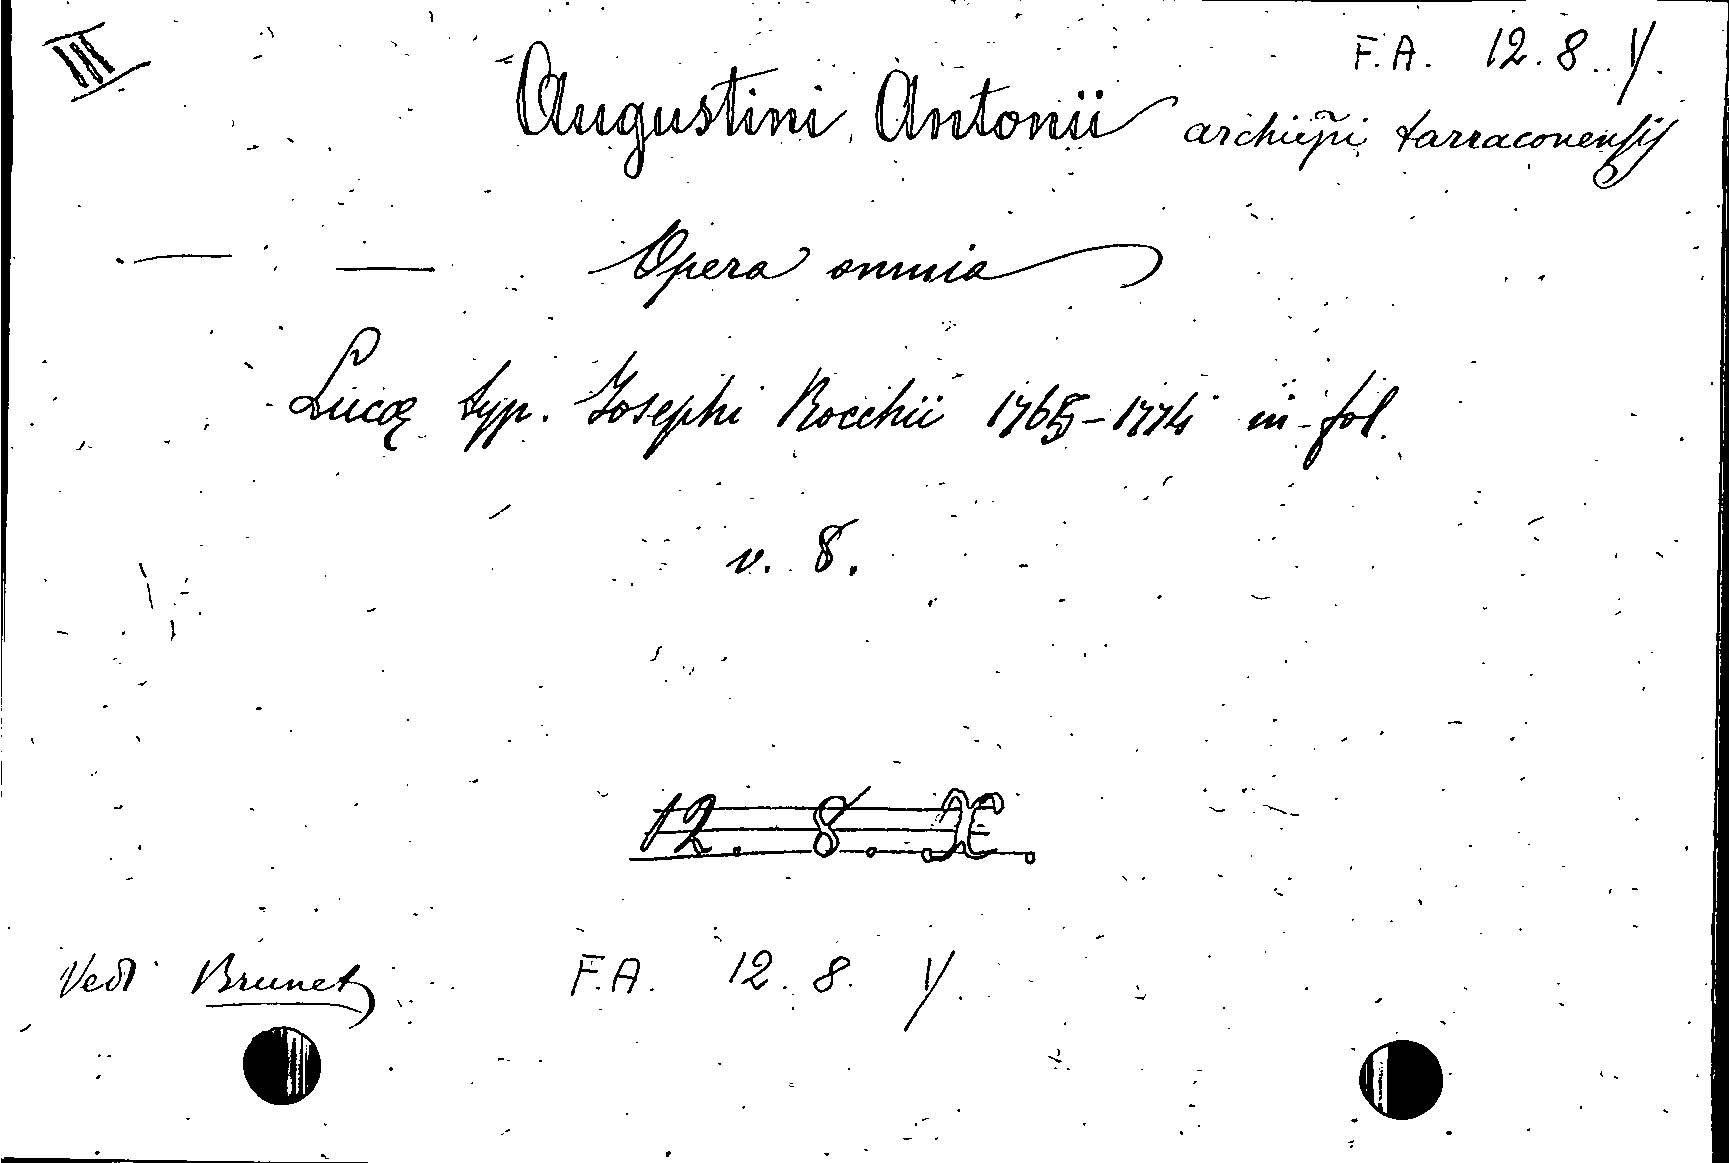 III
F.A. 12.8.Y.
Augustini Antonii archiep̃i tarraconensis
— — Opera omnia
Lucæ typ. Josephi Rocchii 1765-1774 in fol.
v. 8.
12. 8. X.
Vedi Brunet F.A. 12. 8. Y.